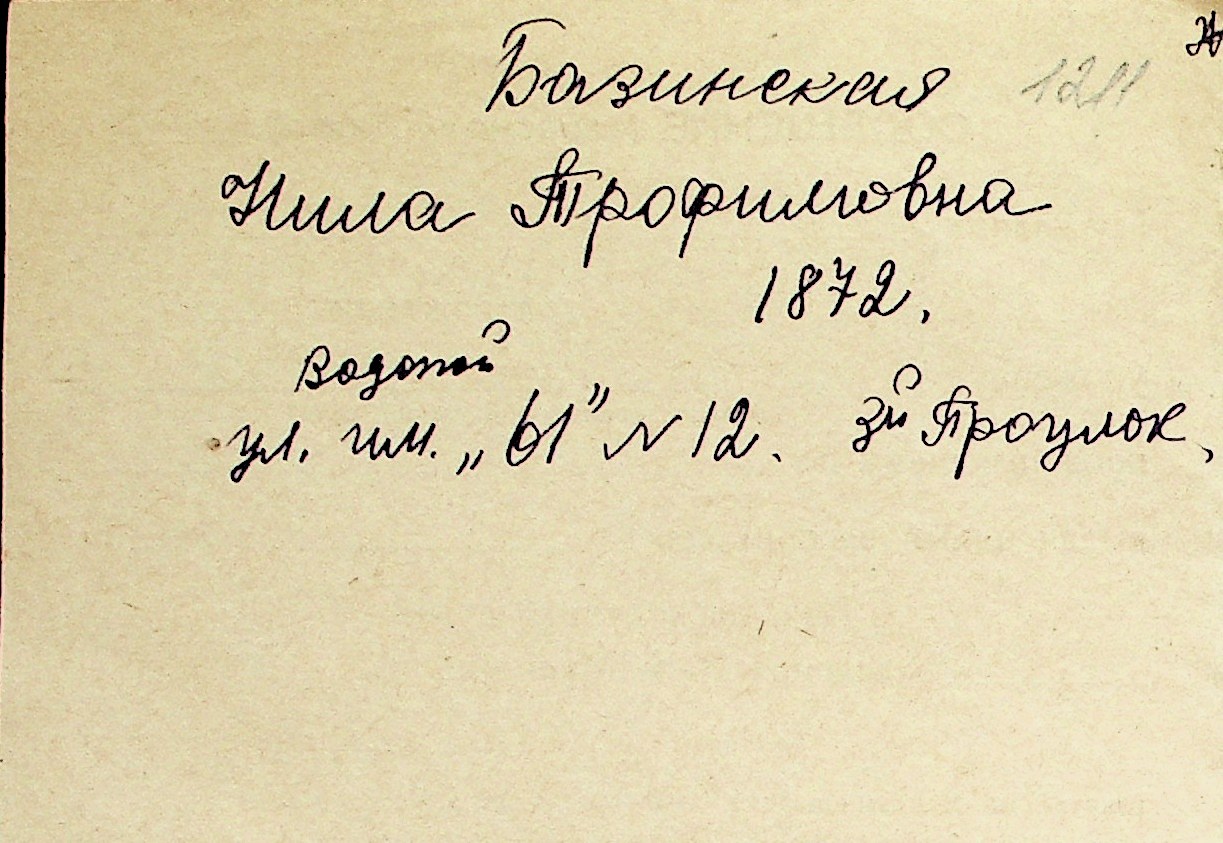 Базинская 1211
Нила Трофимовна
1872.
Водопой
ул. им. „61” N 12. 3й Проулок,